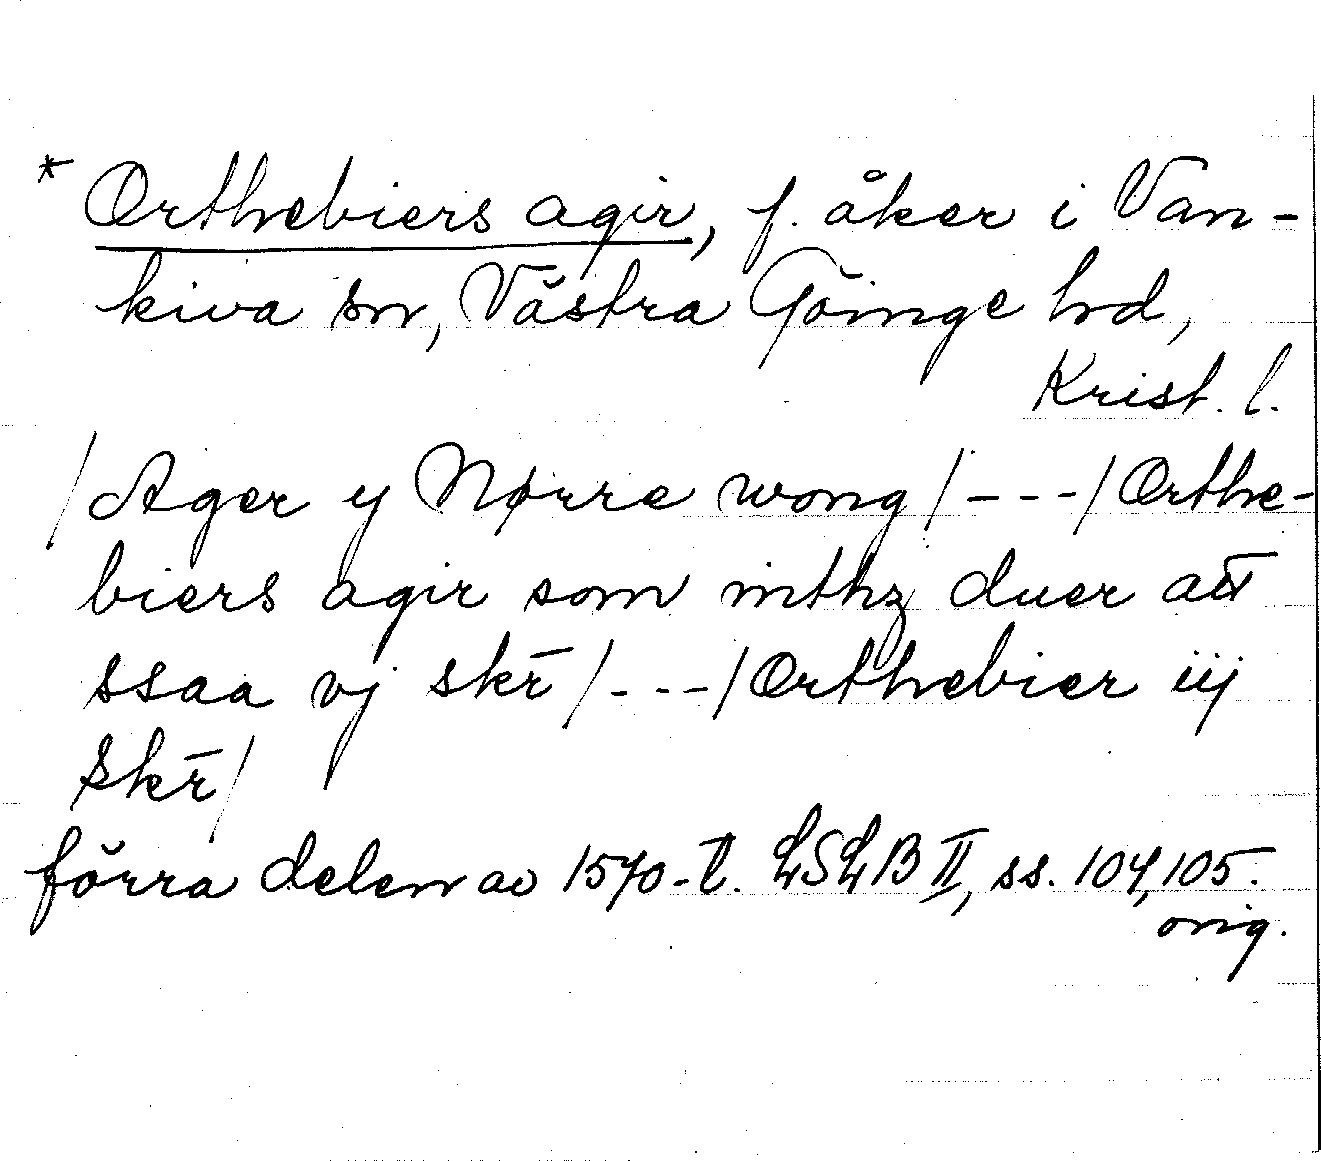 * Orthebiers agir, f. åker i Van-
kiva sn, Västra Göinge hd,
Krist. l.
/Ager y Nørre wong/---/Orthe-
biers agir som inthz duer att
ssaa vj skr̄/---/Orthebier iij
skr̄/
förra delen av 1570-t. LSLB II, ss. 104, 105.
orig.